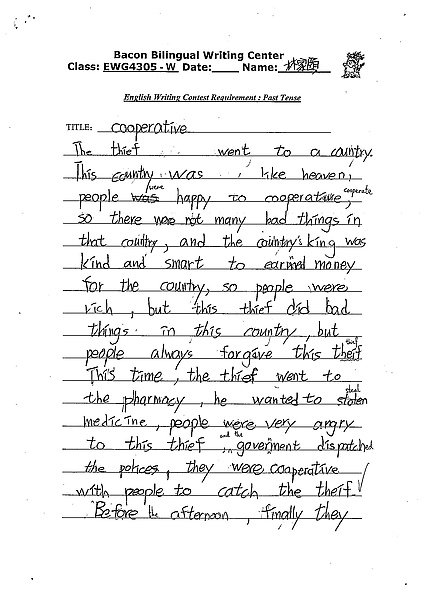 Bacon Bilingual Writing Center
Class: EWG4305 - W Date:____ Name: 林家頤
English Writing Contest Requirement : Past Tense
TITLE: cooperative
The thief went to a country.
This country was like heaven,
were cooperate
people was happy to cooperative,
so there was not many bad things in
that country, and the country's king was
kind and smart to earined money
for the country, so people were
rich, but this thief did bad
things in this country, but
thief
people always forgave this theif.
This time, the thief went to
steal
the pharmacy, he wanted to stolen
medicine, people were very angry
and the
to this thief, goverment dispatched
the polices, they were cooperative
with people to catch the theif.
Before the afternoon, finally they